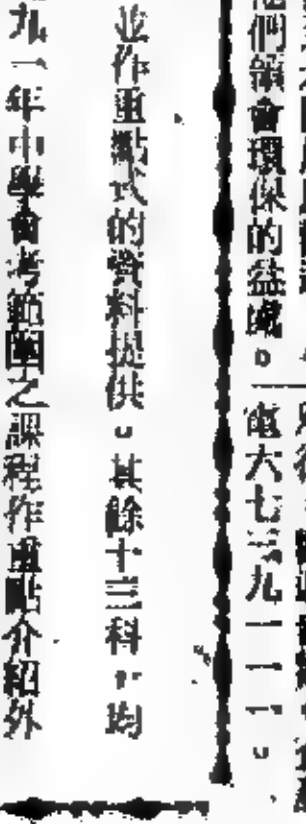 們領會環保的益處。
電六七三九一一一。
並作重點式的資料提供。其餘十三科,均
九一年中學會考範圍之課程作重點介紹外